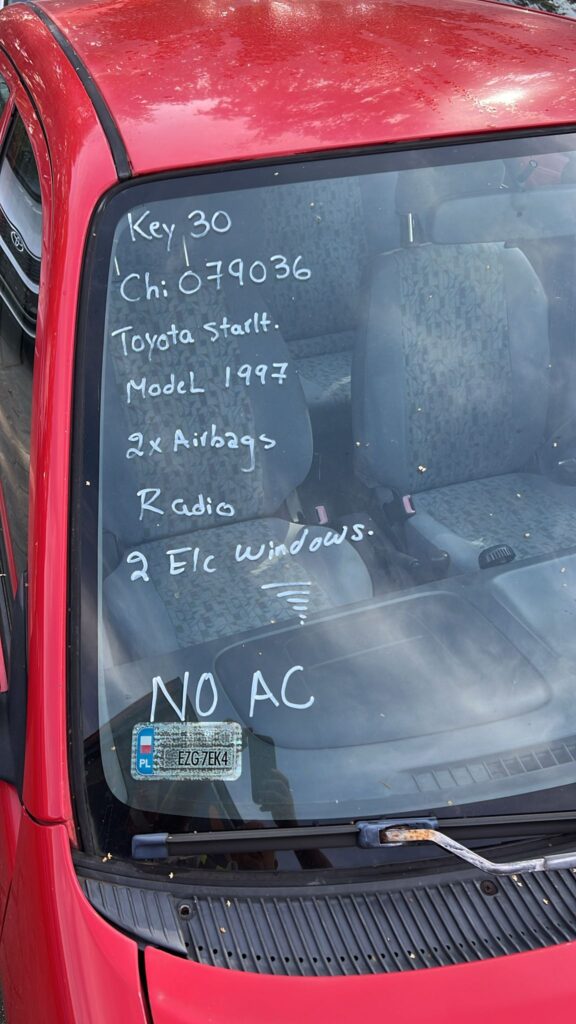 Key 30
Chi 079036
Toyota Starlt.
Model 1997
2x Airbags
Radio
2 Elc windows.
NO AC
PL EZG 7EK4